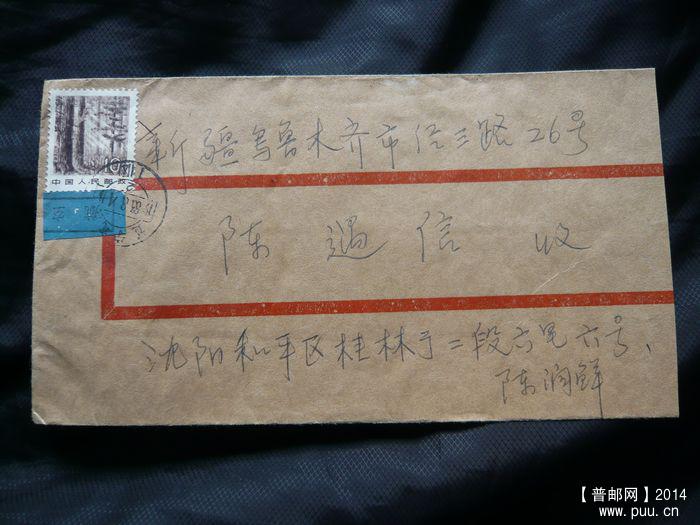 新疆乌鲁木齐市 三路26号
10分
中国人民邮政
陈遇信 收
沈阳和平区桂林 二段六 六号、
陈润鲜
【普邮网】2014
www.puu.cn